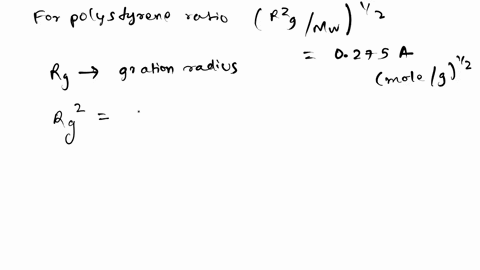 For polystyrene ratio (R²g/Mw)^1/2
= 0.275 A
(mole/g)^1/2
Rg → gration radius
Rg² =